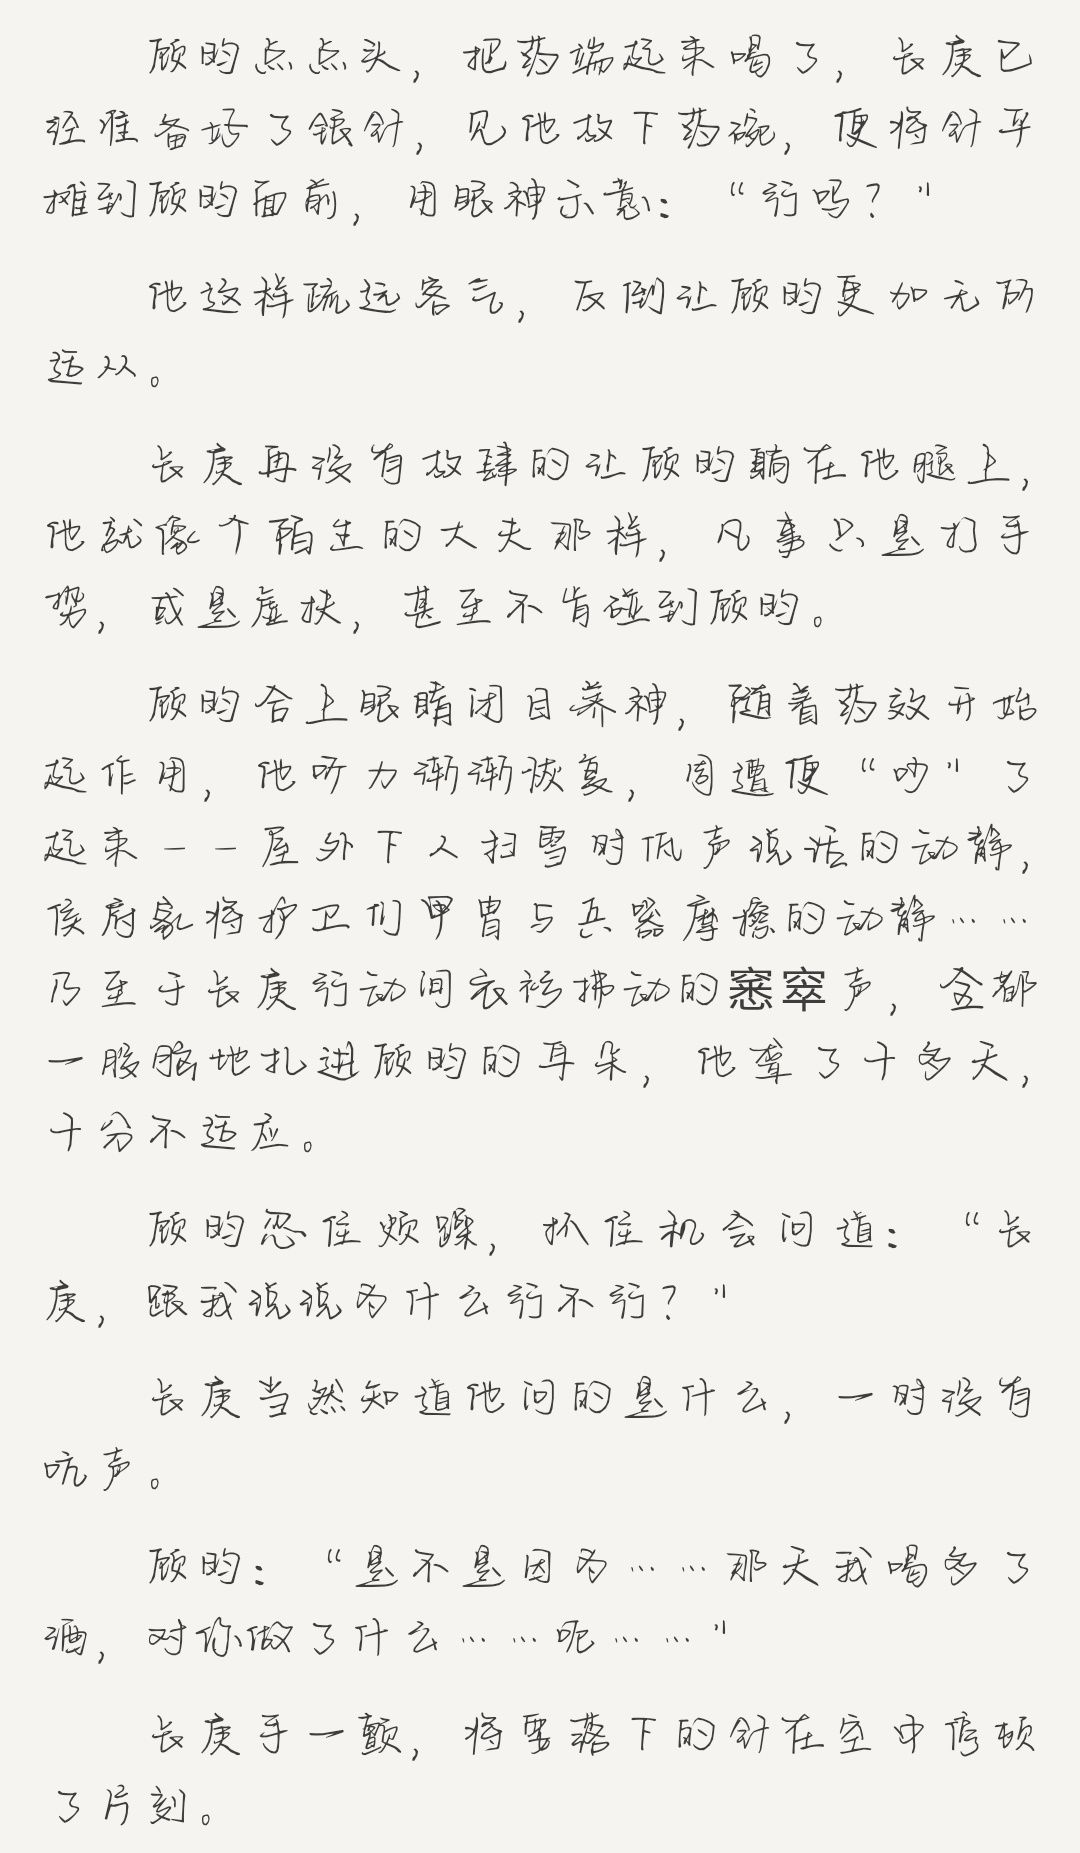 顾昀点点头，把药端起来喝了，长庚已
经准备好了银针，见他放下药碗，便将针平
摊到顾昀面前，用眼神示意：“行吗？”
他这样疏远客气，反倒让顾昀更加无所
适从。
长庚再没有放肆的让顾昀躺在他腿上，
他就像个陌生的大夫那样，凡事只是打手
势，或是虚扶，甚至不肯碰到顾昀。
顾昀合上眼睛闭目养神，随着药效开始
起作用，他听力渐渐恢复，周遭便“吵”了
起来——屋外下人扫雪时低声说话的动静，
侯府家将护卫们甲胄与兵器摩擦的动静……
乃至于长庚行动间衣衫拂动的窸窣声，全都
一股脑地扎进顾昀的耳朵，他聋了十多天，
十分不适应。
顾昀忍住烦躁，抓住机会问道：“长
庚，跟我说说为什么行不行？”
长庚当然知道他问的是什么，一时没有
吭声。
顾昀：“是不是因为……那天我喝多了
酒，对你做了什么……呃……”
长庚手一颤，将要落下的针在空中停顿
了片刻。